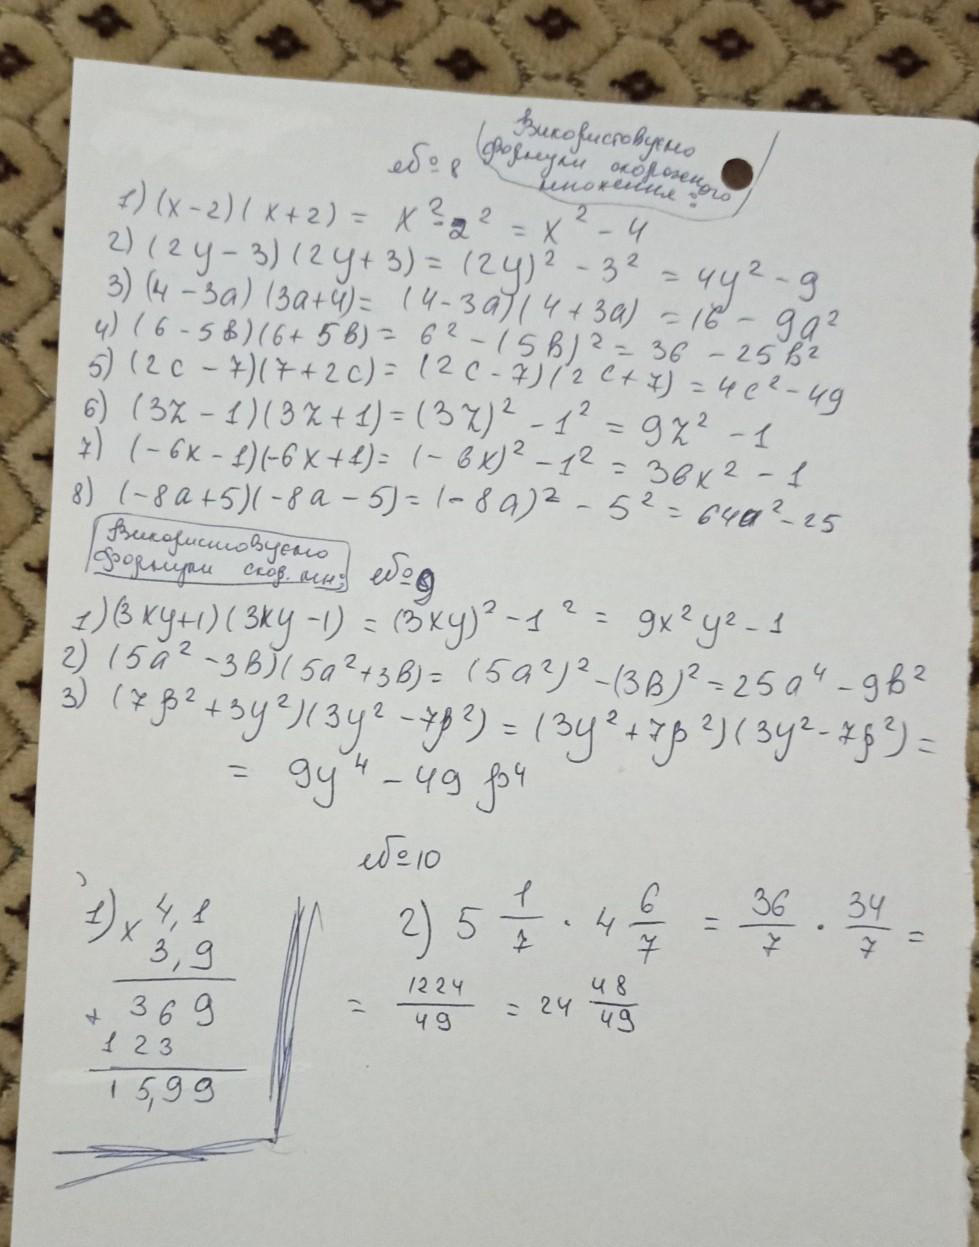 Використовуємо
формули скороченого
множення:
№ 8
1) (x-2)(x+2) = x² - 2² = x² - 4
2) (2y - 3)(2y + 3) = (2y)² - 3² = 4y² - 9
3) (4 - 3a)(3a+4) = (4-3a)(4+3a) = 16 - 9a²
4) (6 - 5b)(6 + 5b) = 6² - (5b)² = 36 - 25b²
5) (2c - 7)(7 + 2c) = (2c - 7)(2c + 7) = 4c² - 49
6) (3z - 1)(3z + 1) = (3z)² - 1² = 9z² - 1
7) (-6x - 1)(-6x + 1) = (-6x)² - 1² = 36x² - 1
8) (-8a + 5)(-8a - 5) = (-8a)² - 5² = 64a² - 25
Використовуємо
формули скор. мн:
№ 9
1) (3xy+1)(3xy-1) = (3xy)² - 1² = 9x²y² - 1
2) (5a² - 3b)(5a² + 3b) = (5a²)² - (3b)² = 25a⁴ - 9b²
3) (7p² + 3y²)(3y² - 7p²) = (3y² + 7p²)(3y² - 7p²) =
= 9y⁴ - 49p⁴
№ 10
1) x 4,1
3,9
+ 369
123
15,99
2) 5 1/7 · 4 6/7 = 36/7 · 34/7 =
= 1224/49 = 24 48/49